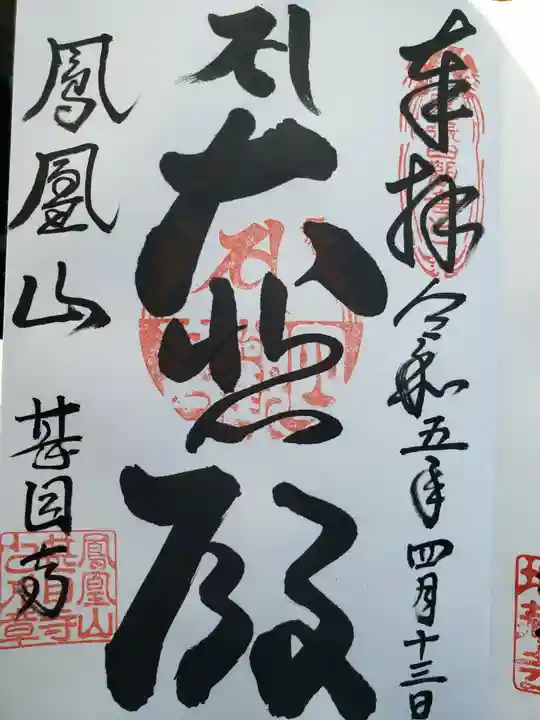 奉拝
令和五年四月十三日
大悲殿
鳳凰山 甚目寺
鳳凰山
甚目寺